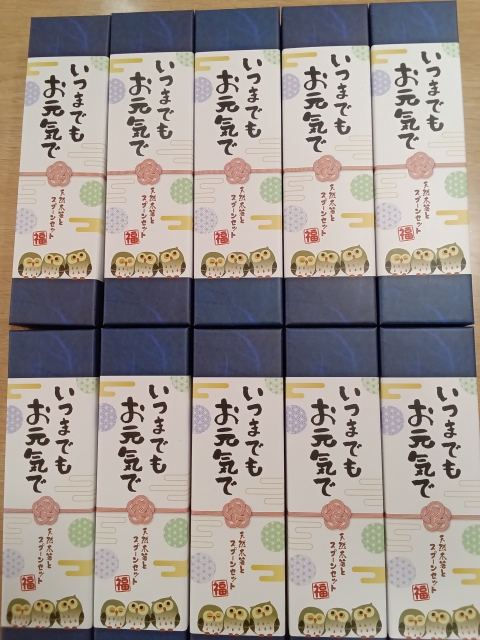 いつまでも
お元気で
天然木箸と
スプーンセット
福
いつまでも
お元気で
天然木箸と
スプーンセット
福
いつまでも
お元気で
天然木箸と
スプーンセット
福
いつまでも
お元気で
天然木箸と
スプーンセット
福
いつまでも
お元気で
天然木箸と
スプーンセット
福
いつまでも
お元気で
天然木箸と
スプーンセット
福
いつまでも
お元気で
天然木箸と
スプーンセット
福
いつまでも
お元気で
天然木箸と
スプーンセット
福
いつまでも
お元気で
天然木箸と
スプーンセット
福
いつまでも
お元気で
天然木箸と
スプーンセット
福